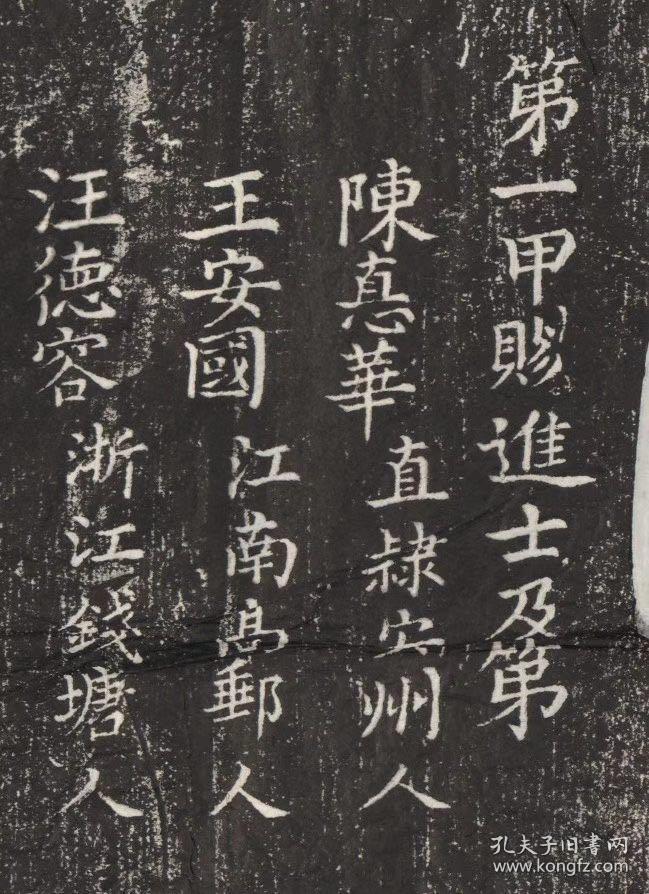 第一甲賜進士及第
陳惪華 直隸安州人
王安國 江南高郵人
汪德容 浙江錢塘人
孔夫子旧書网
www.kongfz.com